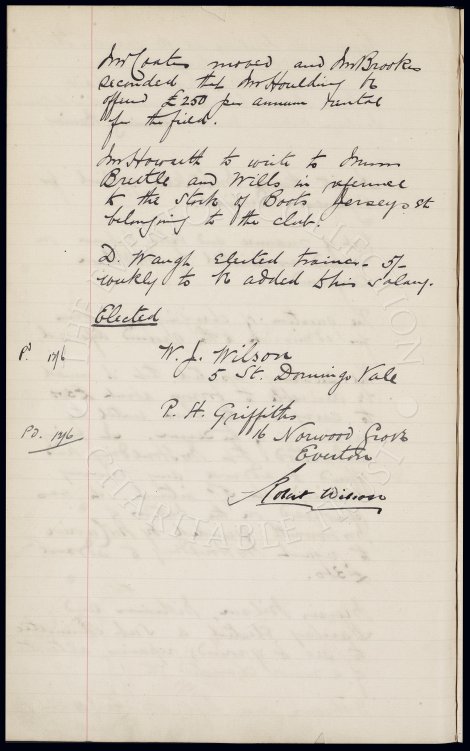 Mr Coates moved and Mr Brooks
seconded that Mr Houlding be
offered £250 per annum rental
for the field.
Mr Howarth to write to Messrs
Brettle and Wills in reference
to the stock of Boots Jerseys etc
belonging to the club.
D. Waugh elected trainer - 5/-
weekly to be added to his salary.
Elected
Pd 10/6 W. J. Wilson
5 St. Domingo Vale
P. H. Griffiths
Pd. 10/6 16 Norwood Grove
Everton
Robert Wilson
CHARITABLE TRUST